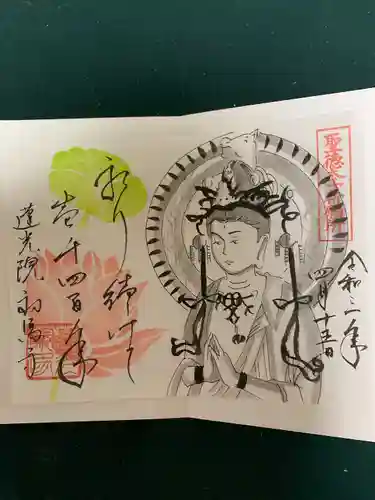 聖徳太子
令和三年
四月十五日
祈り続けて
壱千四百年
蓮光院 初馬寺